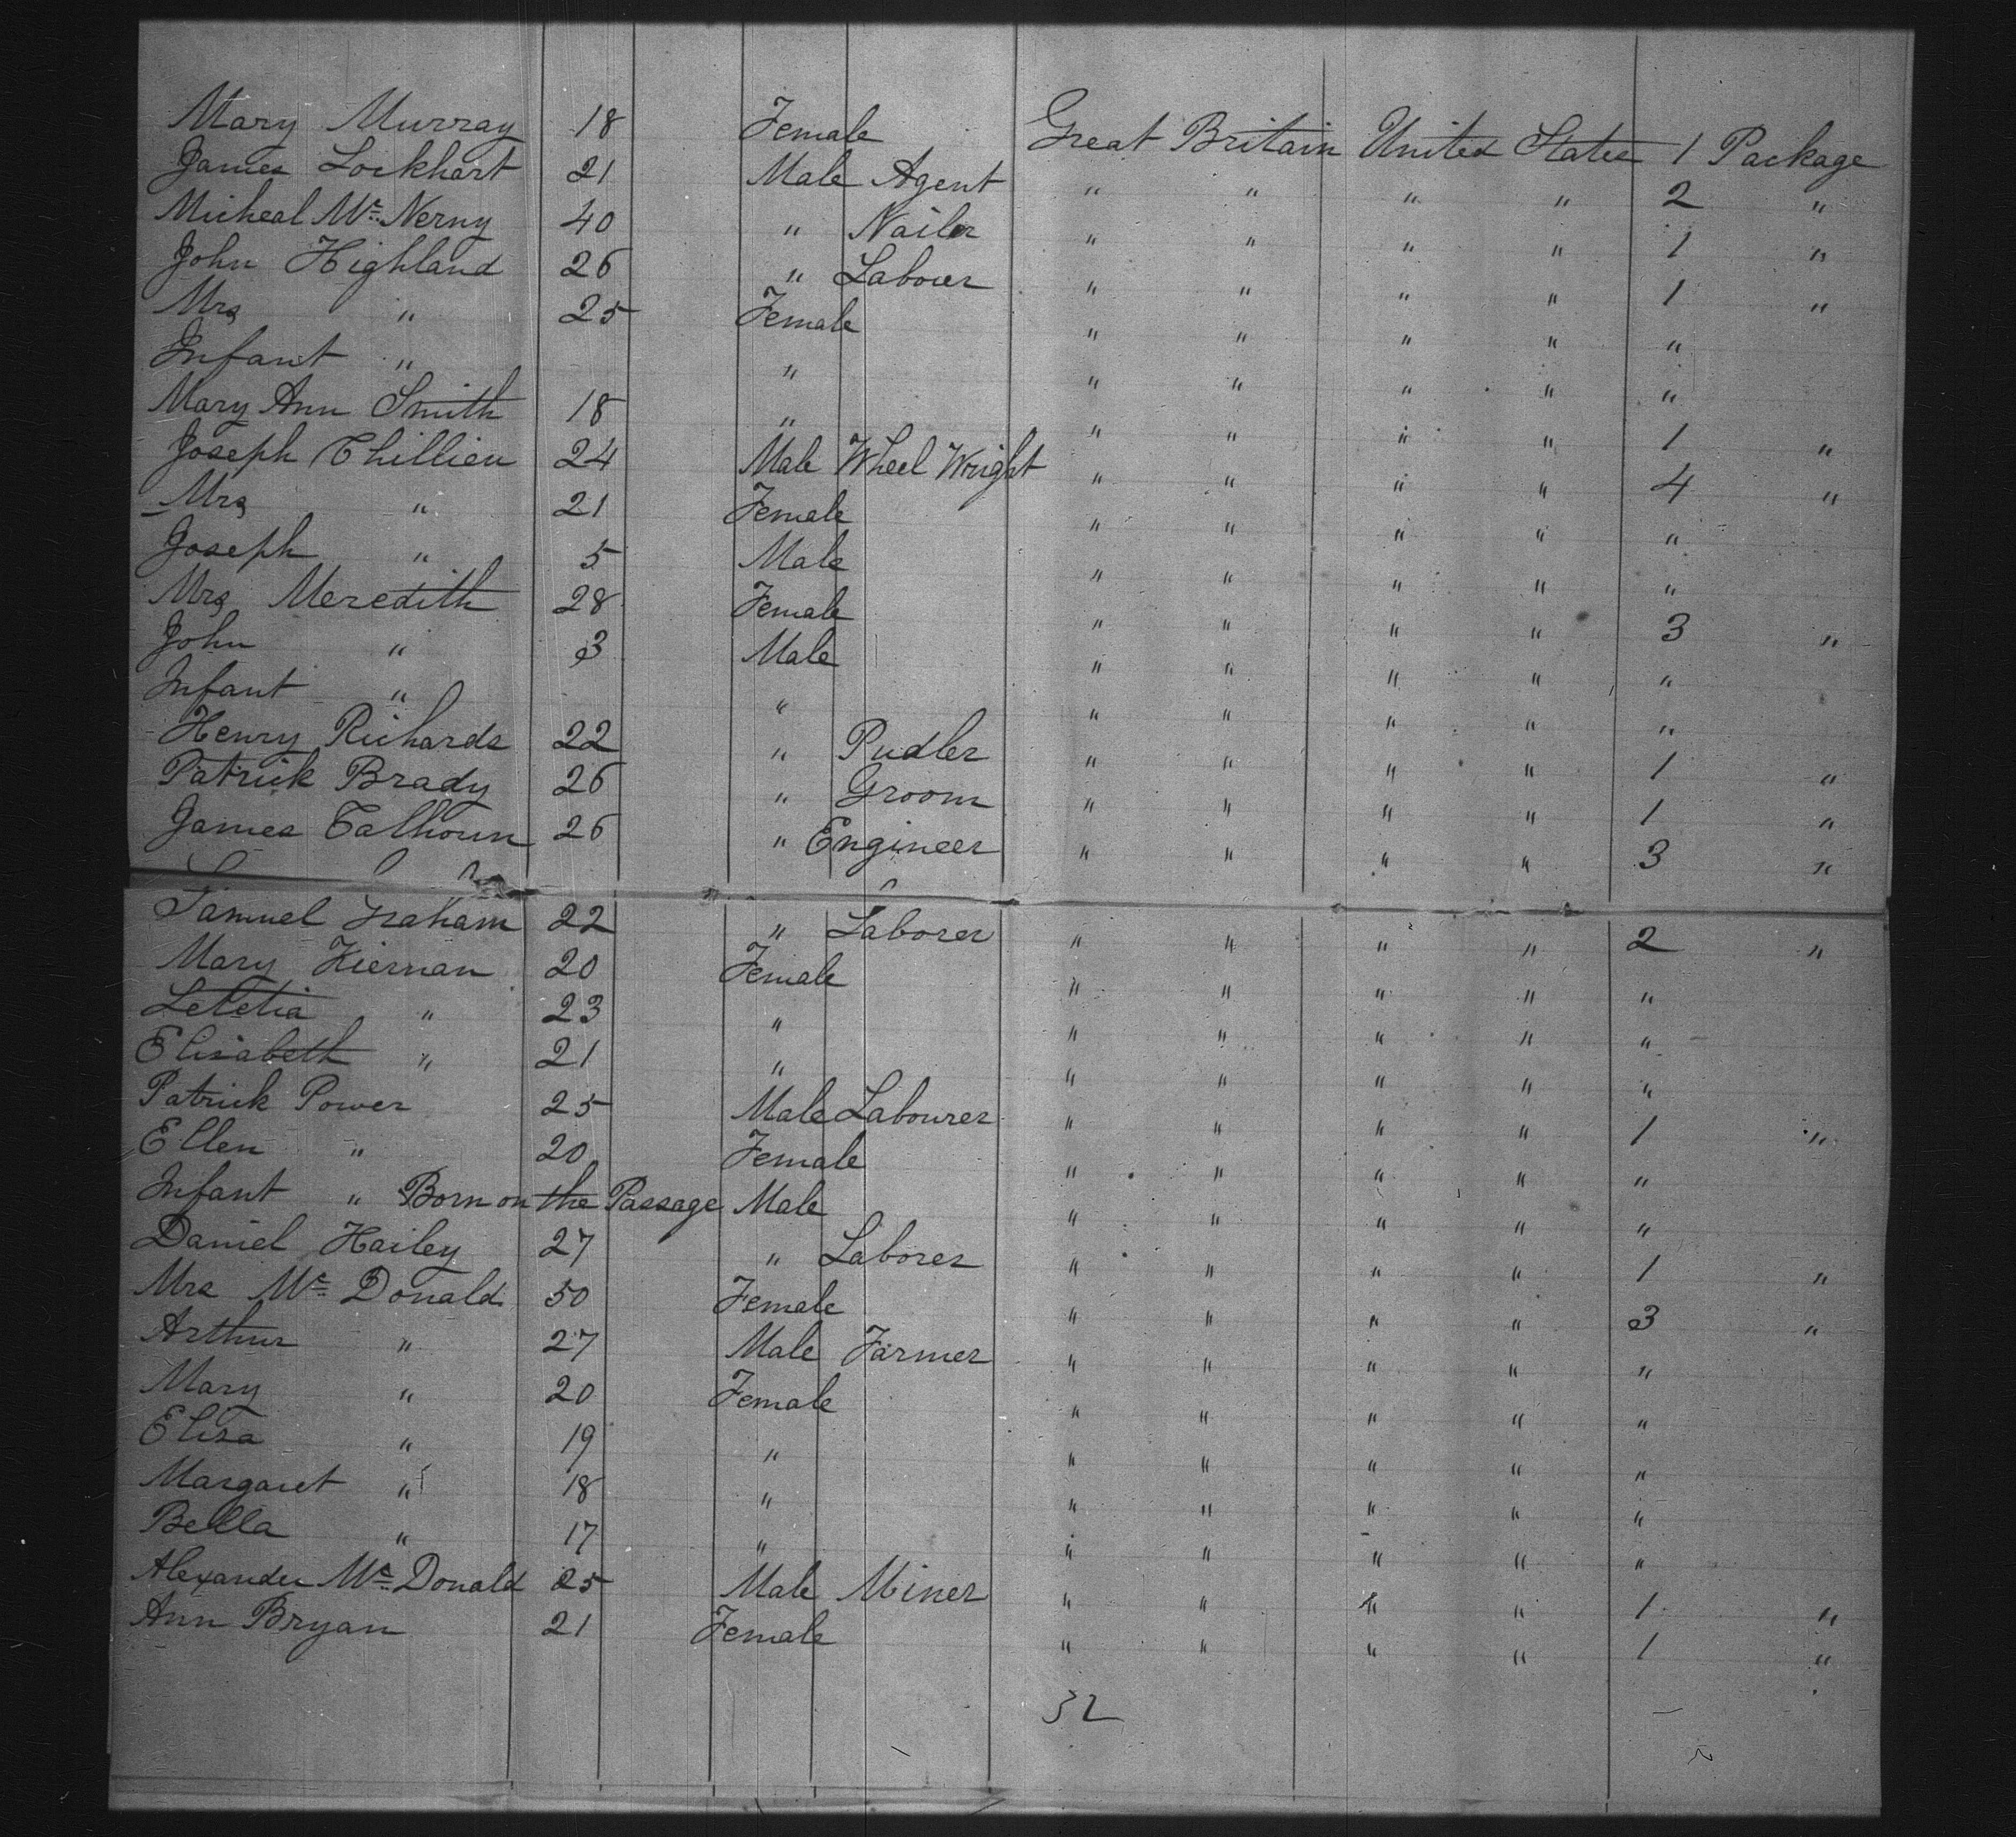 Mary Murray 18 Female Great Britain United States 1 Package
James Lockhart 21 Male Agent " " " " 2 "
Micheal Mc Nerny 40 " Nailer " " " " 1 "
John Highland 26 " Labouer " " " " 1 "
Mrs " 25 Female " " " " "
Infant " " " " " " "
Mary Ann Smith 18 " " " " " 1 "
Joseph Chillien 24 Male Wheel Wright " " " " 4 "
Mrs " 21 Female " " " " "
Joseph " 5 Male " " " " "
Mrs Meredith 28 Female " " " " 3 "
John " 3 Male " " " " "
Infant " " " " " " "
Henry Richards 22 " Pudler " " " " 1 "
Patrick Brady 26 " Groom " " " " 1 "
James Calhoun 26 " Engineer " " " " 3 "
Samuel Graham 22 " Laborer " " " " 2 "
Mary Kiernan 20 Female " " " " "
Letetia " 23 " " " " " "
Elisabeth " 21 " " " " " "
Patrick Power 25 Male Labourer " " " " 1 "
Ellen " 20 Female " " " " "
Infant " Born on the Passage Male " " " " "
Daniel Hailey 27 " Laborer " " " " 1 "
Mrs Mc Donald 50 Female " " " " 3 "
Arthur " 27 Male Farmer " " " " "
Mary " 20 Female " " " " "
Elisa " 19 " " " " " "
Margaret " 18 " " " " " "
Bella " 17 " " " " " "
Alexander Mc Donald 25 Male Miner " " " " 1 "
Ann Bryan 21 Female " " " " 1 "
32